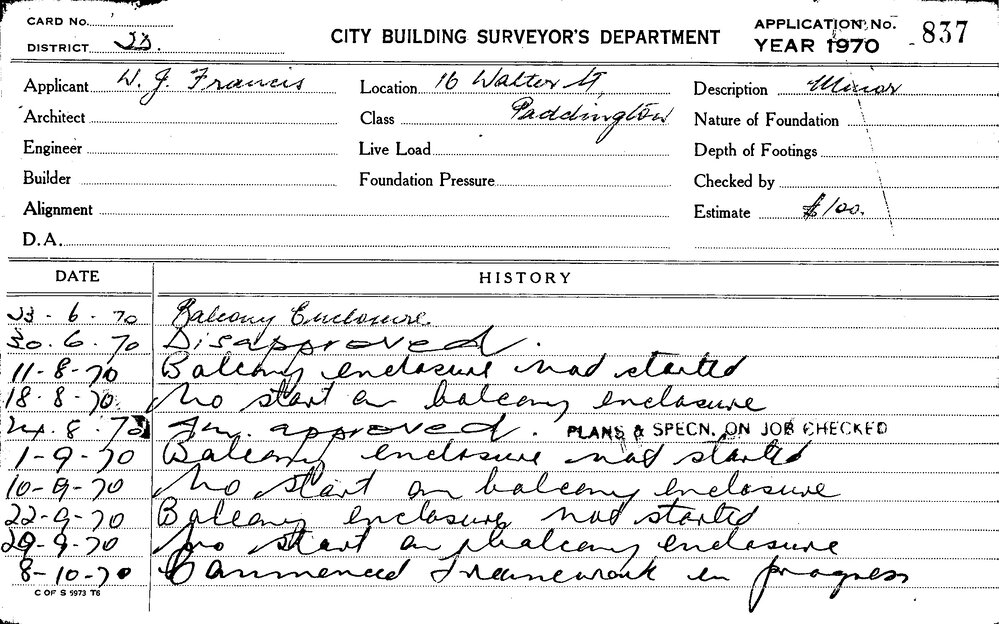 CARD No.
DISTRICT 3D.
CITY BUILDING SURVEYOR'S DEPARTMENT
APPLICATION No. 837
YEAR 1970
Applicant W. J. Francis
Location 16 Walter St,
Description Minor
Architect
Class Paddington
Nature of Foundation
Engineer
Live Load
Depth of Footings
Builder
Foundation Pressure
Checked by
Alignment
Estimate $100.
D.A.
DATE HISTORY
23-6-70 Balcony Enclosure.
30.6.70 Disapproved.
11-8-70 Balcony enclosure not started
18.8.70. No start on balcony enclosure
24.8.70 approved. PLANS & SPECN. ON JOB CHECKED
1-9-70 Balcony enclosure not started
10-9-70 No start on balcony enclosure
22-9-70 Balcony enclosure not started
29-9-70 No start on balcony enclosure
8-10-70 Commenced framework in progress
C OF S 5973 T6